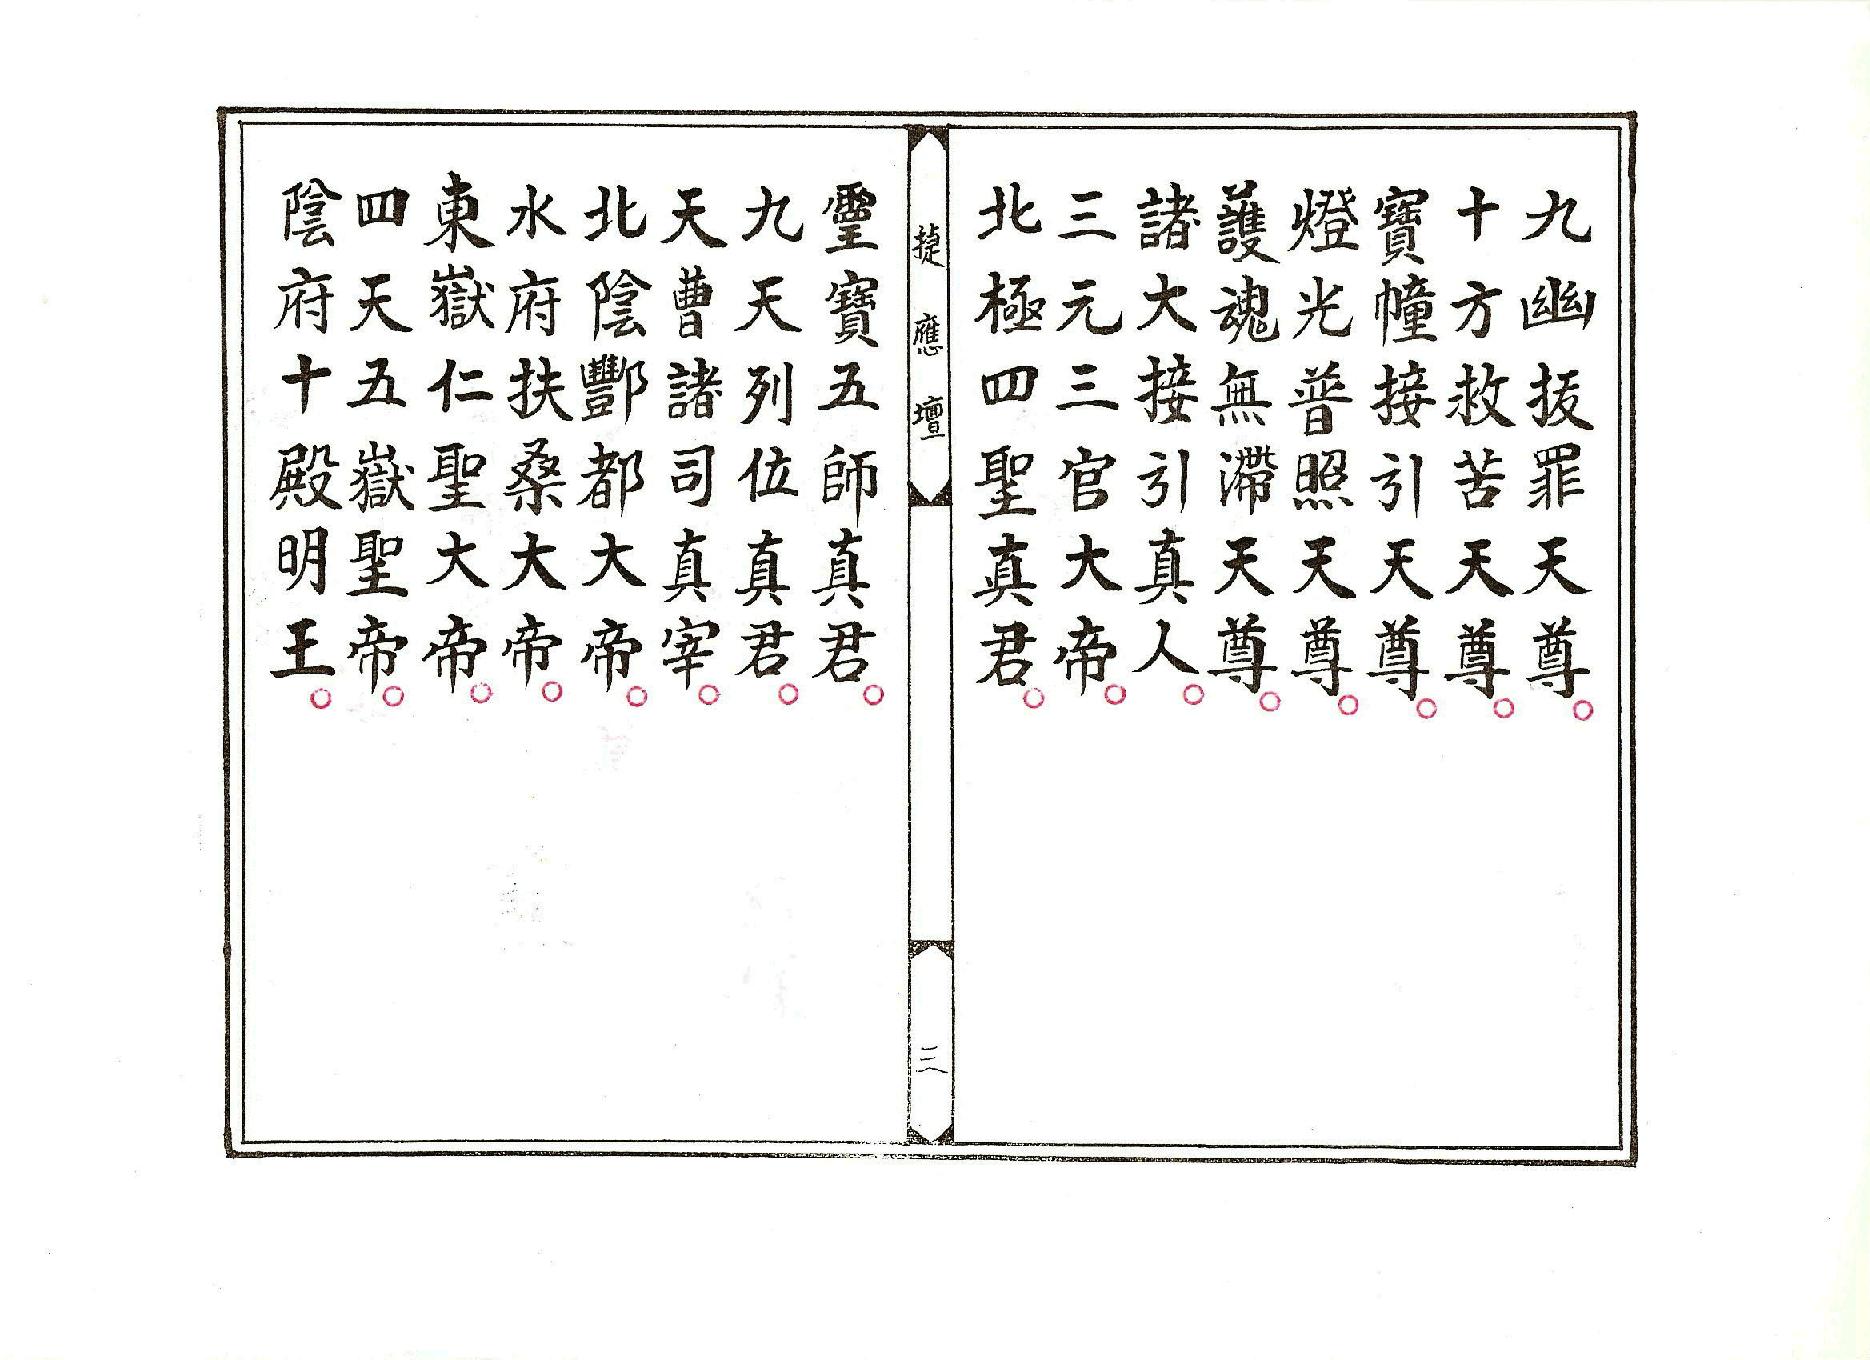 九幽拔罪天尊○
十方救苦天尊○
寶幢接引天尊○
燈光普照天尊○
護魂無滯天尊○
諸大接引真人○
三元三官大帝○
北極四聖真君○
捷應壇
三
靈寶五師真君○
九天列位真君○
天曹諸司真宰○
北陰酆都大帝○
水府扶桑大帝○
東嶽仁聖大帝○
四天五嶽聖帝○
陰府十殿明王○